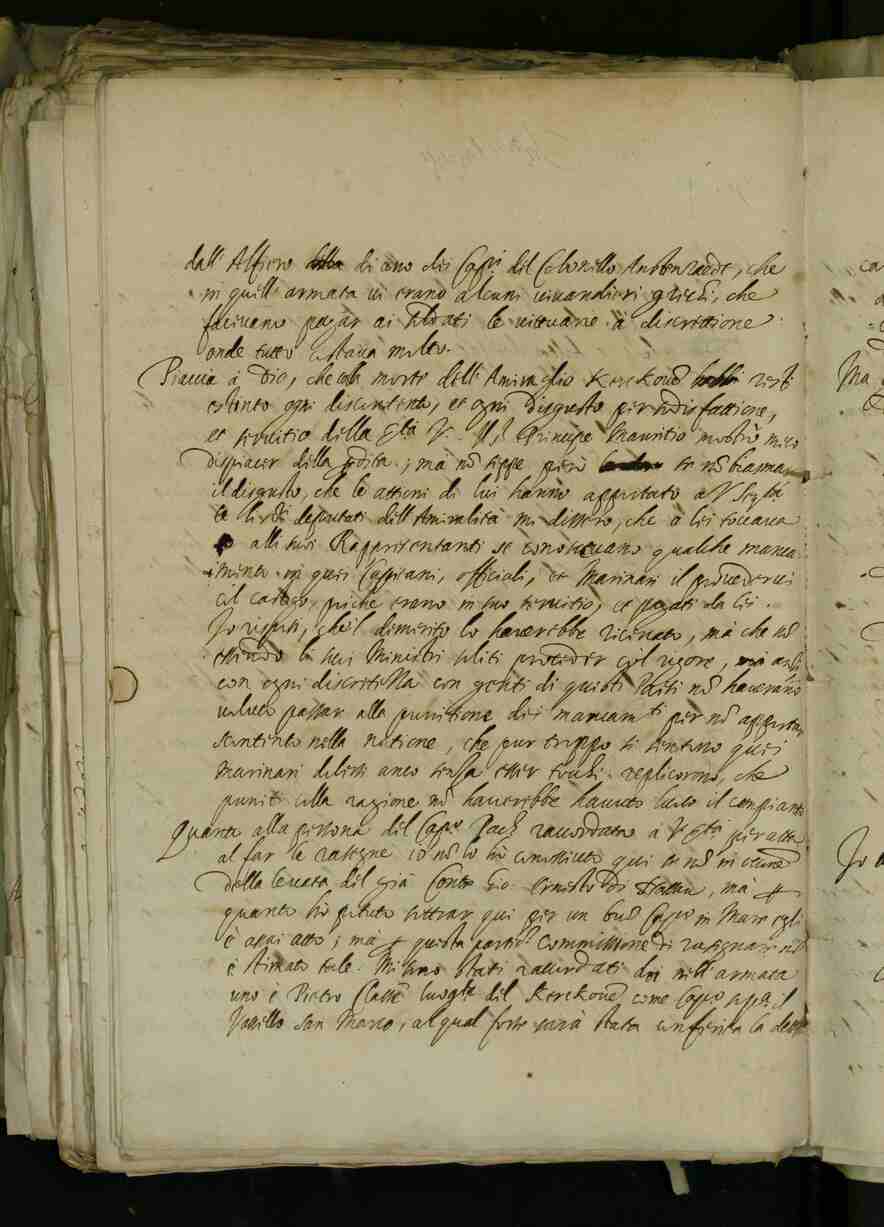 dall Alfiero di uno dei Capi del Colonello che
in quell armata vi erano alcuni vivandieri greci, che
facevano pagar ai soldati le vittuarie à discrettione
onde tutto costava molto.
Piaccia à Dio, che colla morte dell Amiraglio Kerckouen resti
estinto ogni discontento, et ogni disgusto per sodisfattione,
et servitio della Stà V. Il S.r Principe Mauritio mostrò meco
dispiacer della perdita; mà nõ seppe però se nõ biasmar
il disgusto, che le attioni di lui hanno apportato a V Sertà
li deputati dell Amiralità mi dissero, che à lei toccava
alli suoi Rappresentanti se conoscevano qualche manca
mento in quei Capitani, officiali, et Marinari il provedervi
col castigo, poiche erano in suo servitio, et pagati da lei.
Io risposi, che'l demerito lo haverebbe ricercato, mà che nõ
essendo li suoi Ministri soliti proceder col rigore, mà anzi
con ogni discretezza con genti di questi Paesi nõ haveranno
voluto passar alla punitione dei mancamti per nõ apportar
scontento nella natione, che pur troppo si sentono quei
Marinari dolersi anco senza esser tocchi. replicorono, che
puniti colla ragione nõ haverebbe havuto luoco il compianto
Quanto alla persona del Capo raccordato à V Stà per atto
al far le rassegne io nõ lo hò conosciuto qui se nõ in occne
della levata del già Conte Gio. Ernesto di Nassau, mà
quanto hò potuto sottrar qui per un buõ Capo in Mare egli
è assai atto; mà questa partir commissione di rassegnar nõ
è stimato tale. Mi sono stati raccordati doi nell armata
uno è Pietro luogte del Kerckouen come Capo sopra il
Vassello San Marco, al qual forse sarà stata conferita la